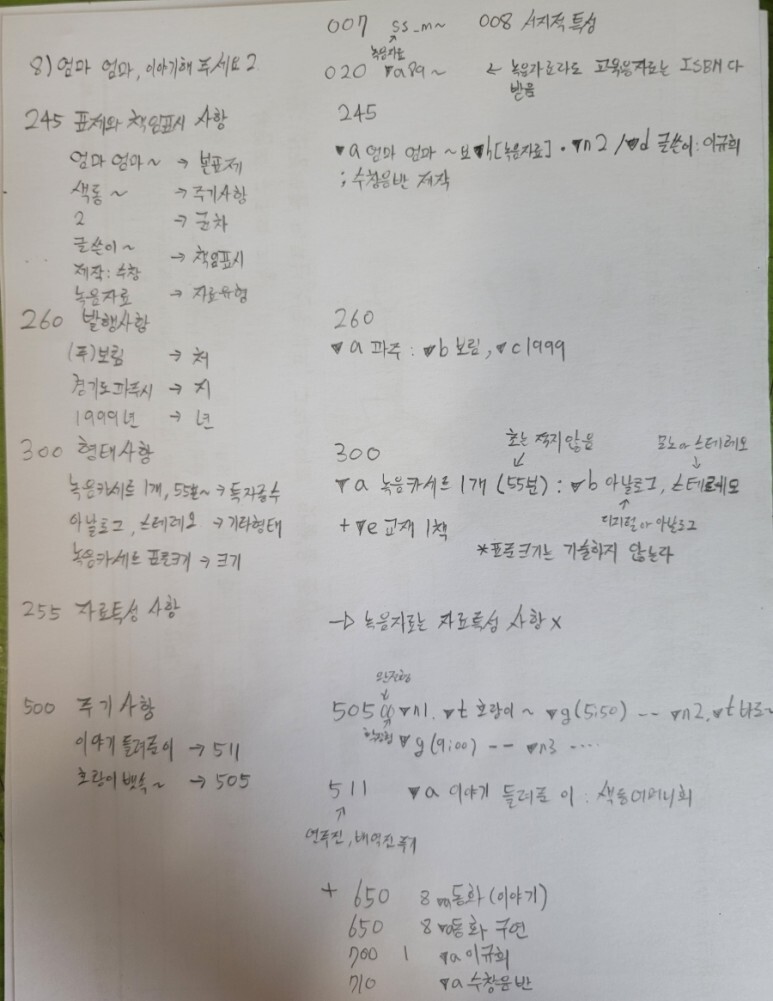 007 ss_m~ 008 서지적 특성
녹음자료
8) 엄마 엄마, 이야기해 주세요 2
020 ▼a89~ ← 녹음자료라도 교육용자료는 ISBN 다
받음
245 표제와 책임표시 사항
245
▼a 엄마 엄마 ~ ▼h[녹음자료]. ▼n2 / ▼d 글쓴이: 이규희
; 수창음반 제작
엄마 엄마~ → 본표제
색동~ → 주기사항
2 → 권차
글쓴이~
제작: 수창 → 책임표시
녹음자료 → 자료유형
260 발행사항
260
(주)보림 → 처
▼a 파주 : ▼b 보림, ▼c1999
경기도파주시 → 지
1999년 → 년
300 형태사항
300
초는 적지않음
모노or스테레오
녹음카세트 1개, 55분~ → 특자종수
▼a 녹음카세트 1개 (55분) : ▼b 아날로그, 스테레오
아날로그, 스테레오 → 기타형태
+▼e 교재 1책
디지털 or 아날로그
녹음카세트 표준크기 → 크기
*표준크기는 기술하지 않는다
255 자료특성 사항
→ 녹음자료는 자료특성 사항 x
500 주기사항
완전형
505 ▼n1. ▼t 호랑이~ ▼g(5:50) -- ▼n2. ▼t
▼g(9:00) -- ▼n3 ....
이야기 들려준이 → 511
호랑이뱃속~ → 505
511 ▼a 이야기 들려준 이 : 색동어머니회
연주진, 배역진주기
+ 650 8 ▼a동화(이야기)
650 8 ▼a동화 구연
700 1 ▼a 이규희
710 ▼a 수창음반